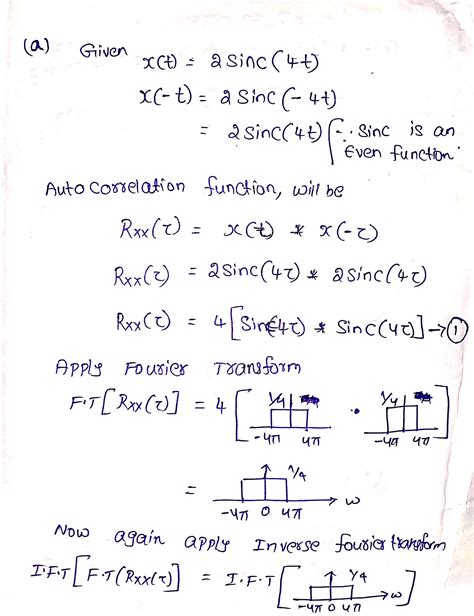 (a) Given x(t) = 2 Sinc (4t)
x(-t) = 2 Sinc (-4t)
= 2 Sinc(4t) [∵ Sinc is an
Even function.
Auto Correlation function, will be
Rxx(τ) = x(t) * x(-τ)
Rxx(τ) = 2 Sinc(4τ) * 2 Sinc(4τ)
Rxx(τ) = 4[Sinc(4τ) * Sinc(4τ)] → ①
Apply Fourier Transform
F.T[Rxx(τ)] = 4 [ 1/4 -4π 4π . 1/4 -4π 4π ]
= 1/4 -4π 0 4π ω
Now again apply Inverse fourier transform
I.F.T[F.T(Rxx(τ)] = I.F.T [ 1/4 -4π 0 4π ω ]